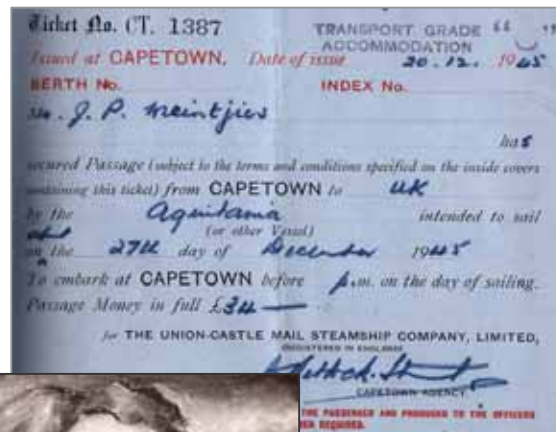 Ticket No. CT. 1387
TRANSPORT GRADE
ACCOMMODATION
Issued at CAPETOWN. Date of issue 20.12. 1945
BERTH No. INDEX No.
Mr. J. P. Meintjies
has
secured Passage (subject to the terms and conditions specified on the inside covers
containing this ticket) from CAPETOWN to UK
by the Aquitania intended to sail
(or other Vessel)
on the 27th day of December 1945
To embark at CAPETOWN before p.m. on the day of sailing.
Passage Money in full £34
for THE UNION-CASTLE MAIL STEAMSHIP COMPANY, LIMITED,
(REGISTERED IN ENGLAND)
CAPETOWN AGENCY.
THE PASSENGER AND PRODUCED TO THE OFFICERS
REQUIRED.